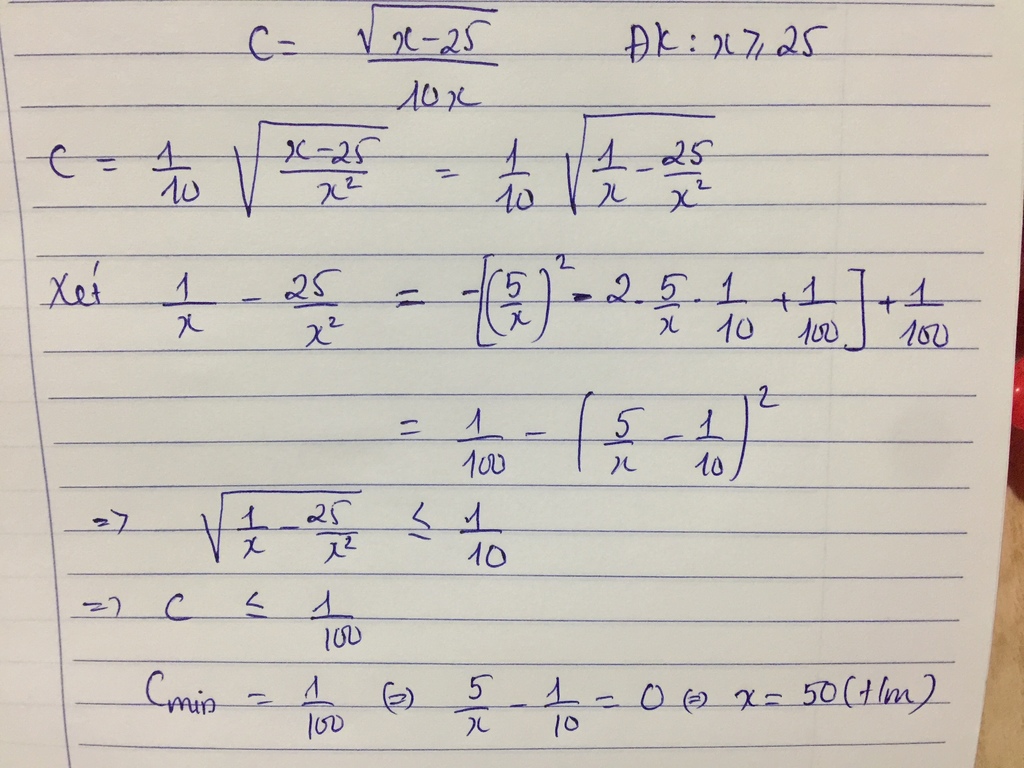 C = √(x-25) / 10x ĐK: x ≥ 25
C = 1/10 √((x-25)/x²) = 1/10 √(1/x - 25/x²)
Xét 1/x - 25/x² = -[(5/x)² - 2. 5/x . 1/10 + 1/100] + 1/100
= 1/100 - (5/x - 1/10)²
=> √(1/x - 25/x²) ≤ 1/10
=> C ≤ 1/100
Cmin = 1/100 (=) 5/x - 1/10 = 0 (=) x = 50 (t/m)